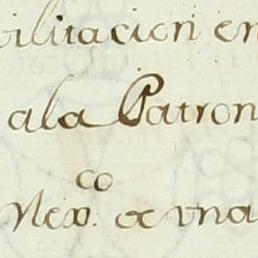 vilitacion en
ala Patron
co
Mex. a una